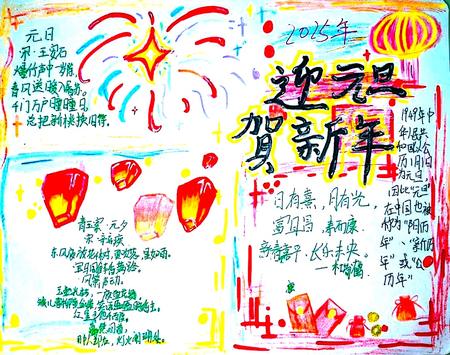 元日
宋·王安石
爆竹声中一岁除
春风送暖入屠苏。
千门万户曈曈日,
总把新桃换旧符。
青玉案·元夕
宋·辛弃疾
东风夜放花千树,更吹落、星如雨。
宝马雕车香满路。
凤箫声动,
玉壶光转,一夜鱼龙舞。
蛾儿雪柳黄金缕,笑语盈盈暗香去。
众里寻他千百度,
蓦然回首,
那人却在,灯火阑珊处。
2025年
迎元旦
贺新年
日有熹,月有光,
富且昌,寿而康,
新春嘉平,长乐未央。
1949年中
华人民共
和国以公
历1月1日
为元旦,
因此"元旦"
在中国也被
称为"阳历
年"、"新历
年"或"公
历年"